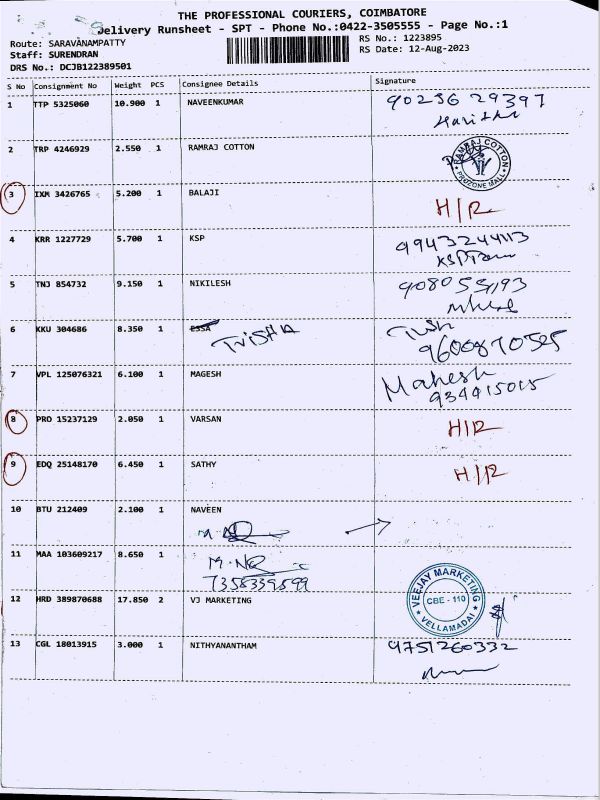 THE PROFESSIONAL COURIERS, COIMBATORE
Delivery Runsheet - SPT - Phone No.:0422-3505555 - Page No.:1
Route: SARAVANAMPATTY
RS No.: 1223895
Staff: SURENDRAN
RS Date: 12-Aug-2023
DRS No.: DCJB122389501
S No Consignment No Weight PCS Consignee Details Signature
1 TTP 5325060 10.900 1 NAVEENKUMAR 90236 29397
2 TRP 4246929 2.550 1 RAMRAJ COTTON RAMRAJ COTTON PROZONE MALL
3 IXM 3426765 5.200 1 BALAJI H/R
4 KRR 1227729 5.700 1 KSP 9943244113
5 TNJ 854732 9.150 1 NIKILESH
6 KKU 304686 8.350 1 ESSA TRISHA
7 VPL 125076321 6.100 1 MAGESH Mahesh
934415015
8 PRO 15237129 2.050 1 VARSAN H/R
9 EDQ 25148170 6.450 1 SATHY H/R
10 BTU 212409 2.100 1 NAVEEN
11 MAA 103609217 8.650 1
7358339599
12 HRD 389870688 17.850 2 VJ MARKETING VEEJAY MARKETING CBE - 110 VELLAMADAI
13 CGL 18013915 3.000 1 NITHYANANTHAM 9751260332